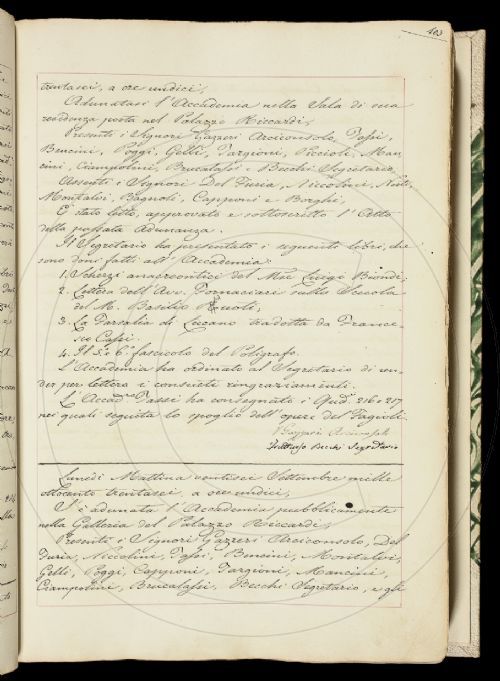 403
trentasei, a ore undici,
Adunatasi l'Accademia nella Sala di sua
residenza posta nel Palazzo Riccardi,
Presenti i Signori Gazzeri Arciconsolo, Tassi,
Bencini, Poggi, Gelli, Targioni, Piccioli, Man-
cini, Ciampolini, Brucalassi e Becchi Segretario.
Assenti i Signori Del Furia, Niccolini,
Montalvi, Bagnoli, Capponi e Borghi,
E' stato letto, approvato e sottoscritto l'Atto
della passata Adunanza.
Il Segretario ha presentato i seguenti libri, che
sono doni fatti all'Accademia:
1. Scherzi anacreontici del Mse Luigi Biondi;
2. Lettera dell'Avv. Fornaciari sulla Scuola
del M. Basilio Puoti;
3. La Farsalia di Lucano tradotta da France-
sco Cassi.
4. Il 5.° e 6.° fascicolo del Poligrafo.
L'Accademia ha ordinato al Segretario di ren-
der per lettera i consueti ringraziamenti.
L'Accad.co Tassi ha consegnato i Quad. 216 e 217
nei quali seguita lo spoglio dell'opere del Fagiuoli.
G Gazzeri Arciconsolo
Fruttuoso Becchi Segretario
Lunedì Mattina ventisei Settembre mille
ottocento trentasei, a ore undici,
S'è adunata l'Accademia pubblicamente
nella Galleria del Palazzo Riccardi,
Presenti i Signori Gazzeri Arciconsolo, Del
Furia, Niccolini, Tassi, Bencini, Montalvi,
Gelli, Poggi, Capponi, Targioni, Mancini,
Ciampolini, Brucalassi, Becchi Segretario, e gli